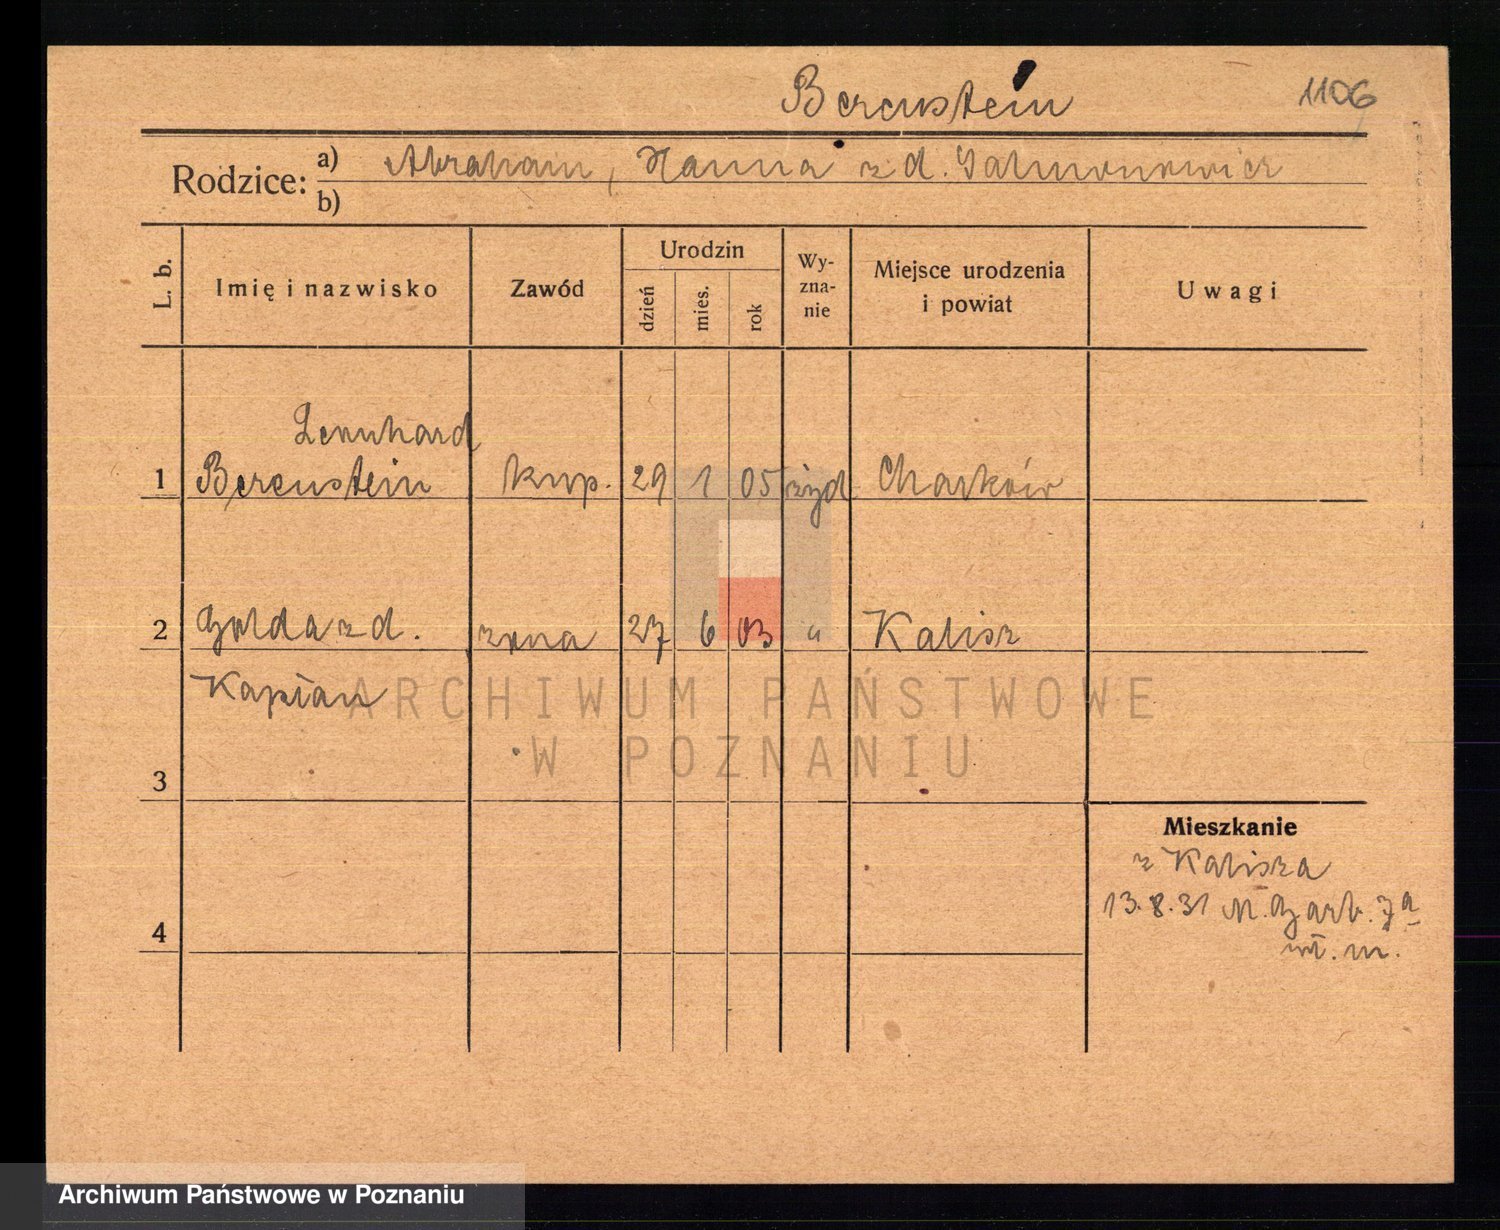 Berenstein 1106
Rodzice: a) Abraham, Hanna z d. Salmonowicz
b)
L. b. Imię i nazwisko Zawód Urodzin dzień mies. rok Wyznanie Miejsce urodzenia i powiat Uwagi
Lennhard
1 Berenstein kup. 29 1 05 żyd Charków
2 Golda z d. żona 27 6 03 " Kalisz
Kapłan
ARCHIWUM PAŃSTWOWE
W POZNANIU
3
Mieszkanie
z Kalisza
13.8.31 M. Garb. 7a
4
wł. m.
Archiwum Państwowe w Poznaniu